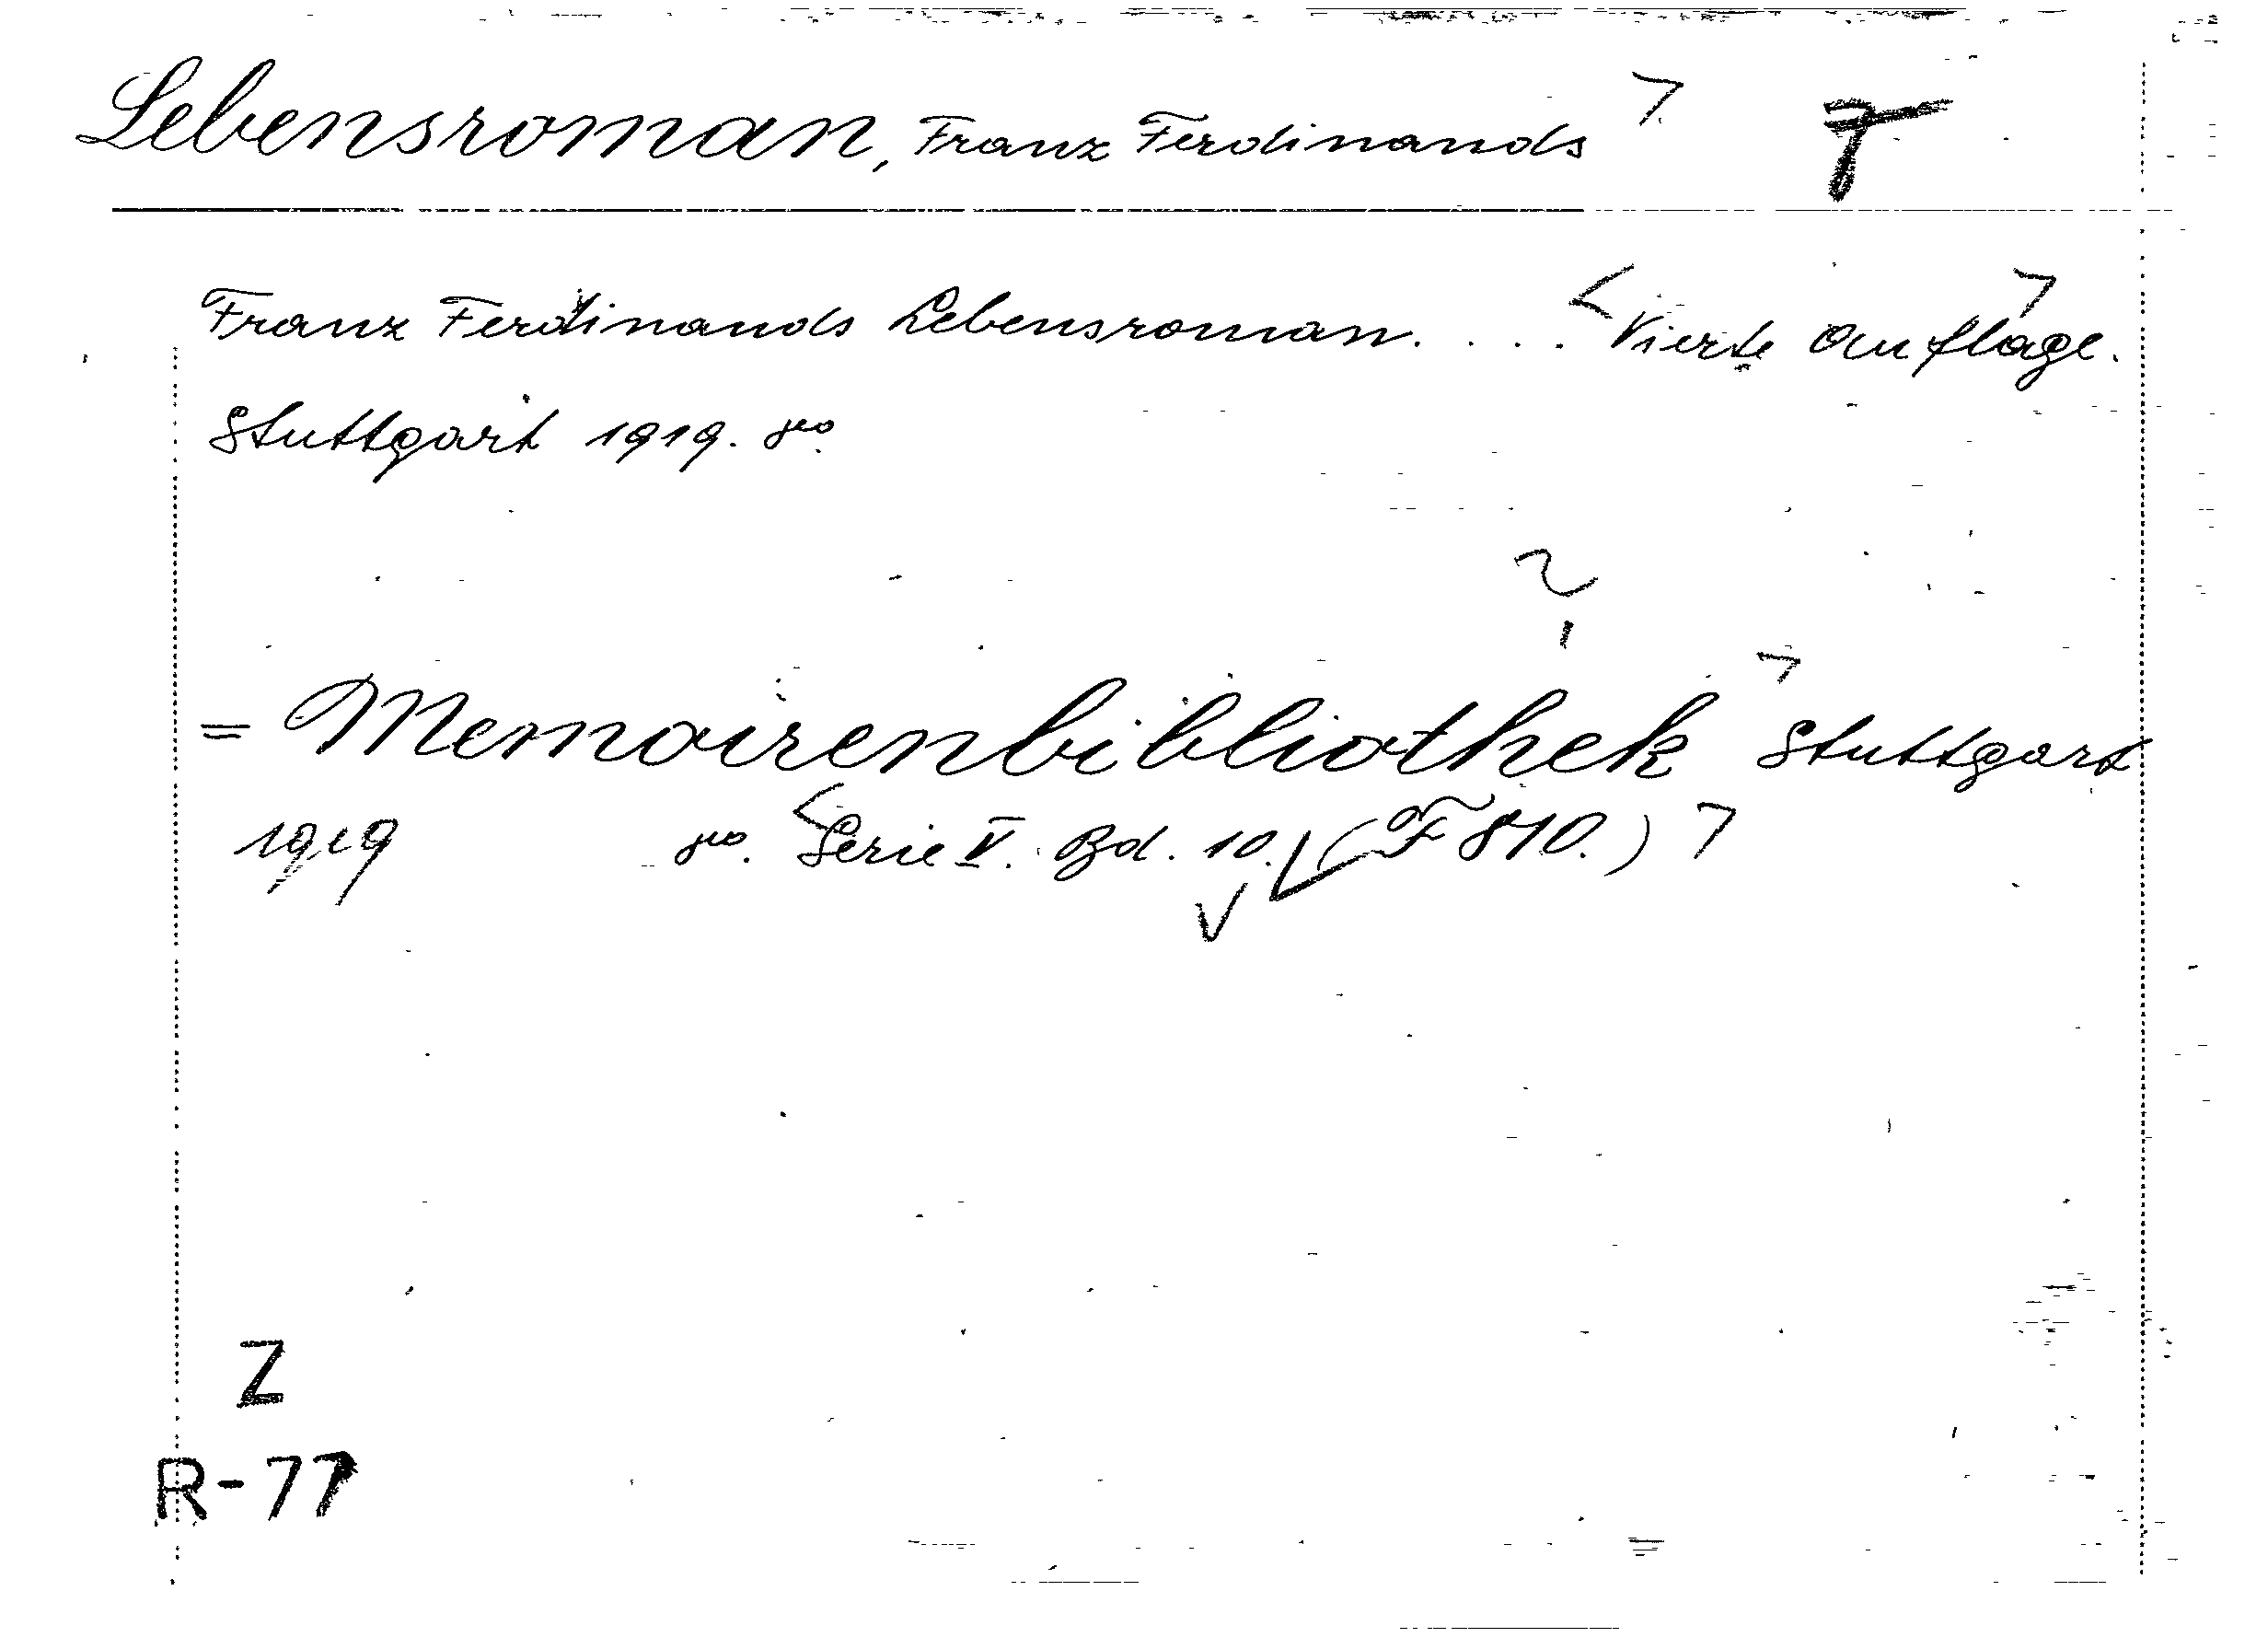 Lebensroman, Franz Ferdinands
Franz Ferdinands Lebensroman. ... Vierte Auflage.
Stuttgart 1919. 8vo.
= Memoirenbibliothek Stuttgart
1919 8vo. Serie V. Bd. 10. (F 810.)
Z
R-77